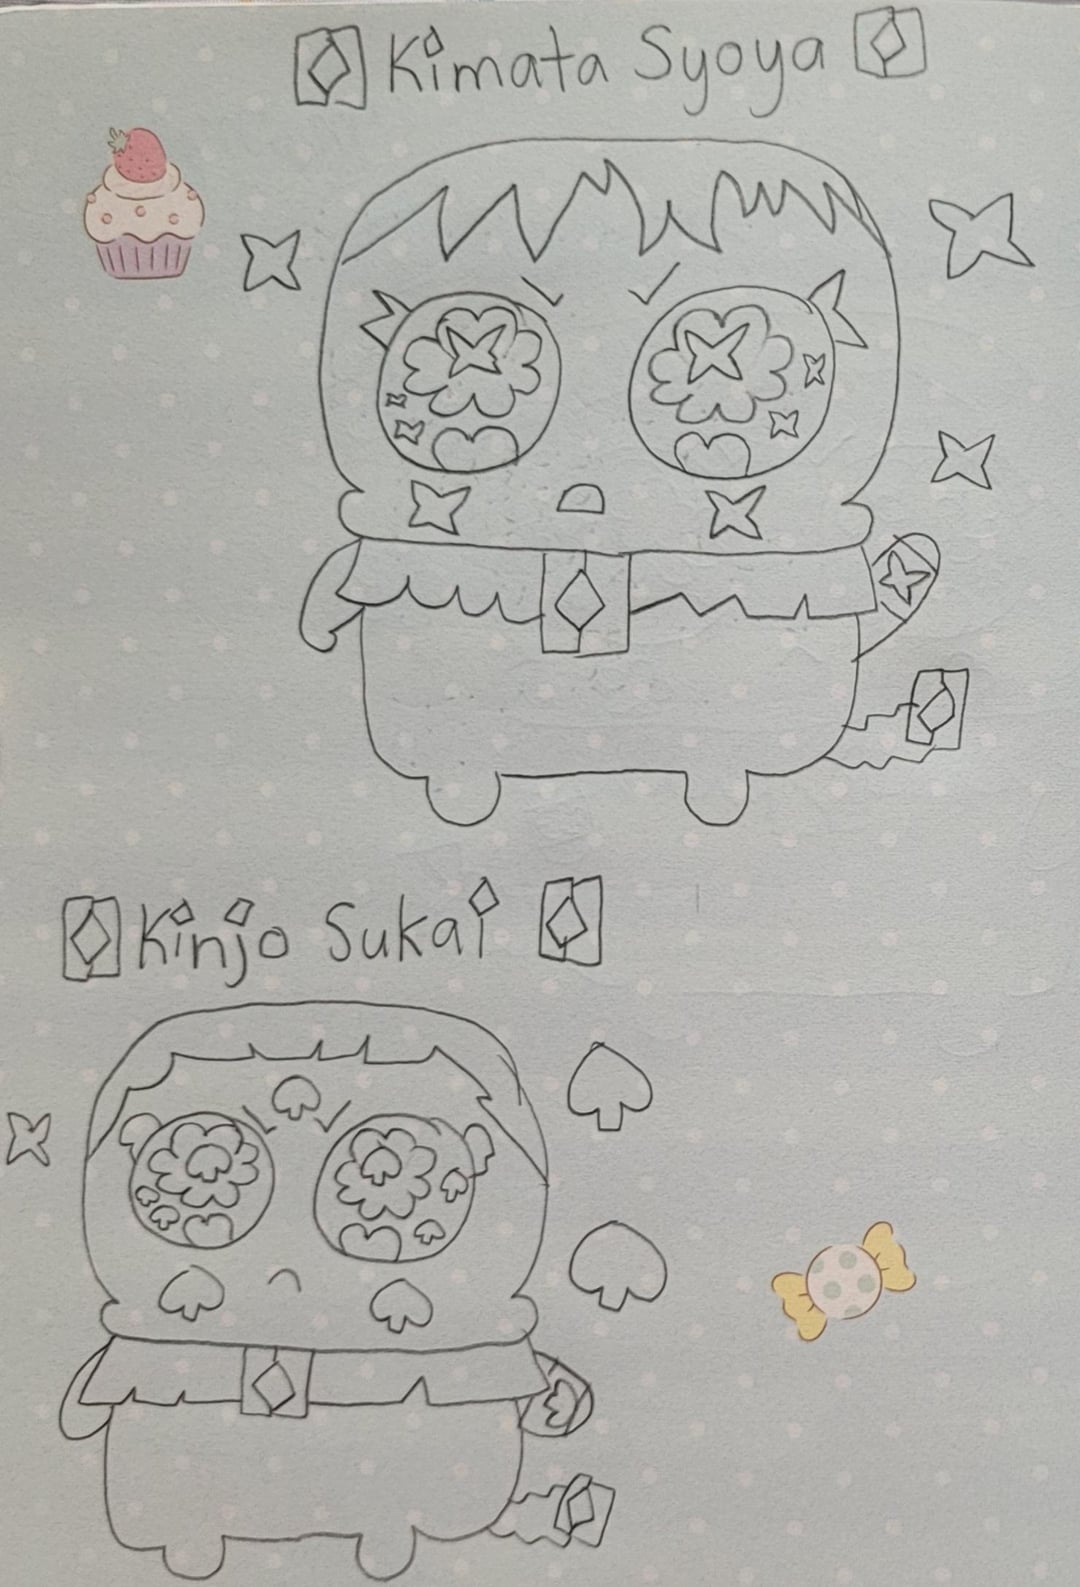 Kimata Syoya
Kinjo Sukai